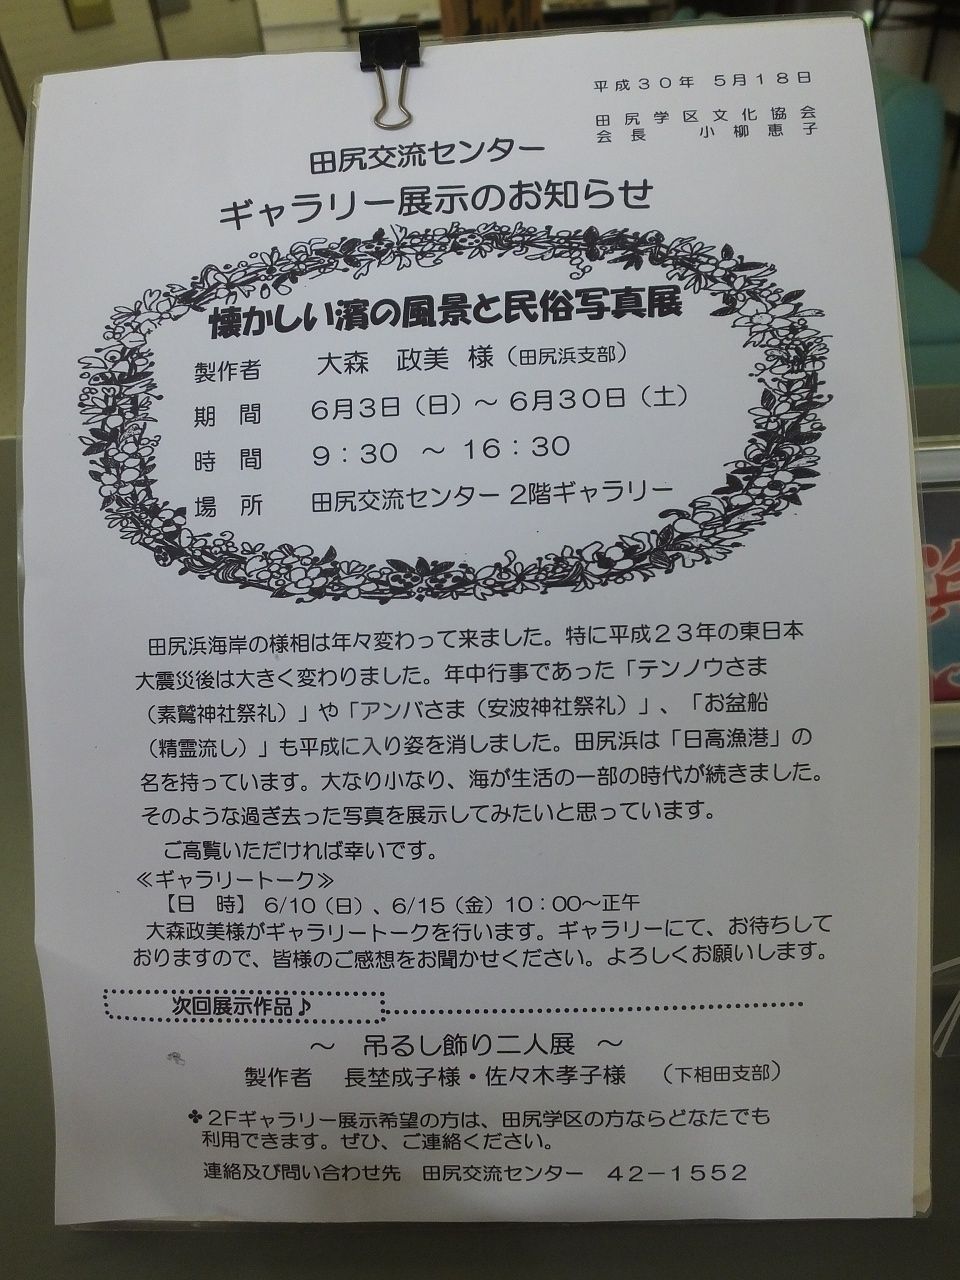 平成30年 5月18日
田尻学区文化協会
会長 小柳恵子
田尻交流センター
ギャラリー展示のお知らせ
懐かしい濱の風景と民俗写真展
製作者 大森 政美 様（田尻浜支部）
期 間 6月3日（日）～ 6月30日（土）
時 間 9：30 ～ 16：30
場 所 田尻交流センター 2階ギャラリー
田尻浜海岸の様相は年々変わって来ました。特に平成23年の東日本
大震災後は大きく変わりました。年中行事であった「テンノウさま
（素鵞神社祭礼）」や「アンバさま（安波神社祭礼）」、「お盆船
（精霊流し）」も平成に入り姿を消しました。田尻浜は「日高漁港」の
名を持っています。大なり小なり、海が生活の一部の時代が続きました。
そのような過ぎ去った写真を展示してみたいと思っています。
ご高覧いただければ幸いです。
≪ギャラリートーク≫
【日 時】 6/10（日）、6/15（金）10：00～正午
大森政美様がギャラリートークを行います。ギャラリーにて、お待ちして
おりますので、皆様のご感想をお聞かせください。よろしくお願いします。
次回展示作品♪
～ 吊るし飾り二人展 ～
製作者 長埜成子様・佐々木孝子様 （下相田支部）
✤2Fギャラリー展示希望の方は、田尻学区の方ならどなたでも
利用できます。ぜひ、ご連絡ください。
連絡及び問い合わせ先 田尻交流センター 42－1552
浜